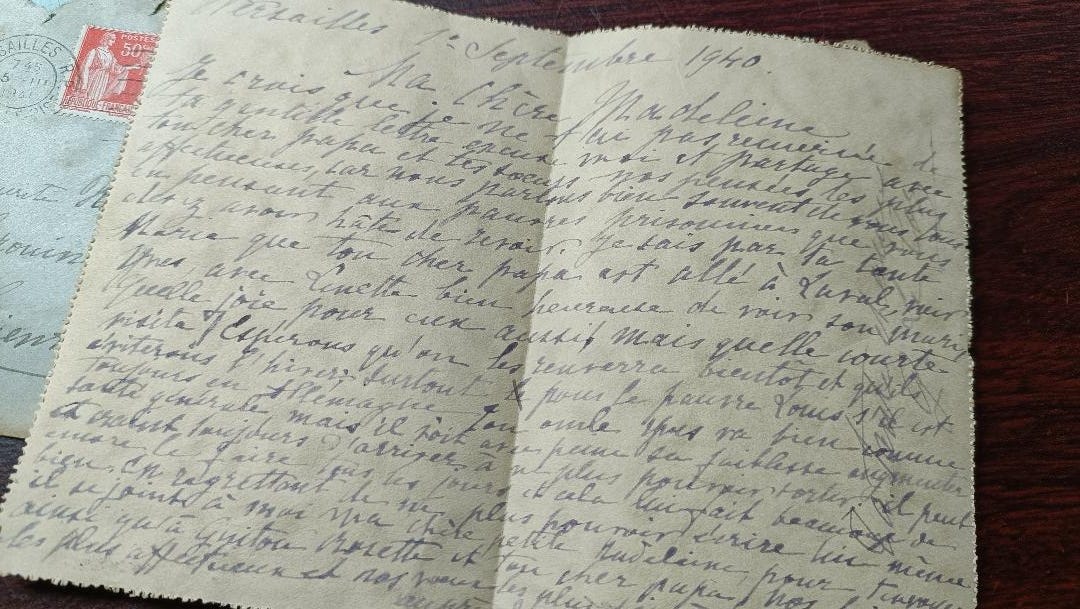 POSTES
50c
RÉPUBLIQUE FRANÇAISE
Versailles 1er Septembre 1940.
Ma Chère Madeleine
Je crois que je ne t'ai pas remerciée de
ta gentille lettre excuse moi et partage avec
ton cher papa et tes sœurs nos pensées les plus
affectueuses, car nous parlons bien souvent de vous tous
en pensant aux pauvres prisonniers que vous
devez avoir hâte de revoir. Je sais par ta tante
Maria que ton cher papa est allé à Laval voir
Yves avec Linette bien heureuse de voir son mari
Quelle joie pour eux aussi, mais quelle courte
visite! Espérons qu'on les renverra bientôt et qu'ils
éviterons l'hiver surtout pour le pauvre Louis s'il est
toujours en Allemagne Ton oncle va bien comme
santé générale mais il voit avec peine sa faiblesse augmenter
et craint toujours d'arriver à ne plus pouvoir sortir, il peut
encore le faire tous les jours et cela lui fait beaucoup de
bien, en regrettant de ne plus pouvoir écrire lui même
il se joint à moi ma chère petite Madeleine pour t'envoyer
ainsi qu'à Guiton Rosette et ton cher papa nos
les plus affectueux et nos vœux les plus